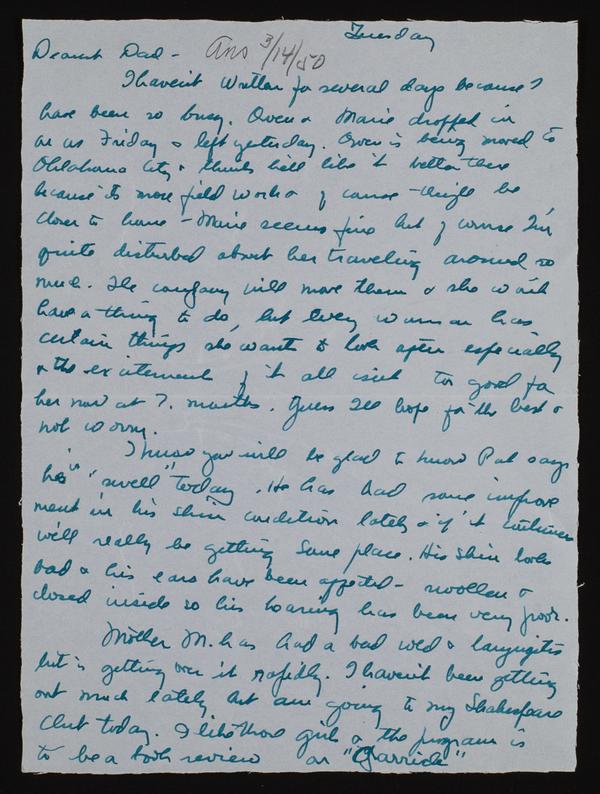 Tuesday
Dearest Dad - Ans 3/14/50
I haven't written for several days because I
have been so busy. Owen & Marie dropped in
on us Friday & left yesterday. Owen is being moved to
Oklahoma City & thinks he'll like it better there
because its more field work & of course - they'll be
closer to home - Marie seems fine but of course I'm
quite disturbed about her traveling around so
much. The company will move them & she won't
have a thing to do, but every woman has
certain things she wants to look after especially
& the excitement of it all isn't too good for
her now at 7. months. Guess I'll hope for the best &
not worry.
I know you will be glad to know Pat says
he is "swell" today. He has had some improve
ment in his skin condition lately & if it continues
we'll really be getting some place. His skin looks
bad & his ears have been affected - swollen &
closed inside so his hearing has been very poor.
Mother M. has had a bad cold & laryngitis
but is getting over it rapidly. I haven't been getting
out much lately but am going to my Shakespeare
Club today. I like those girls & the program is
to be a book review on "Garrick"